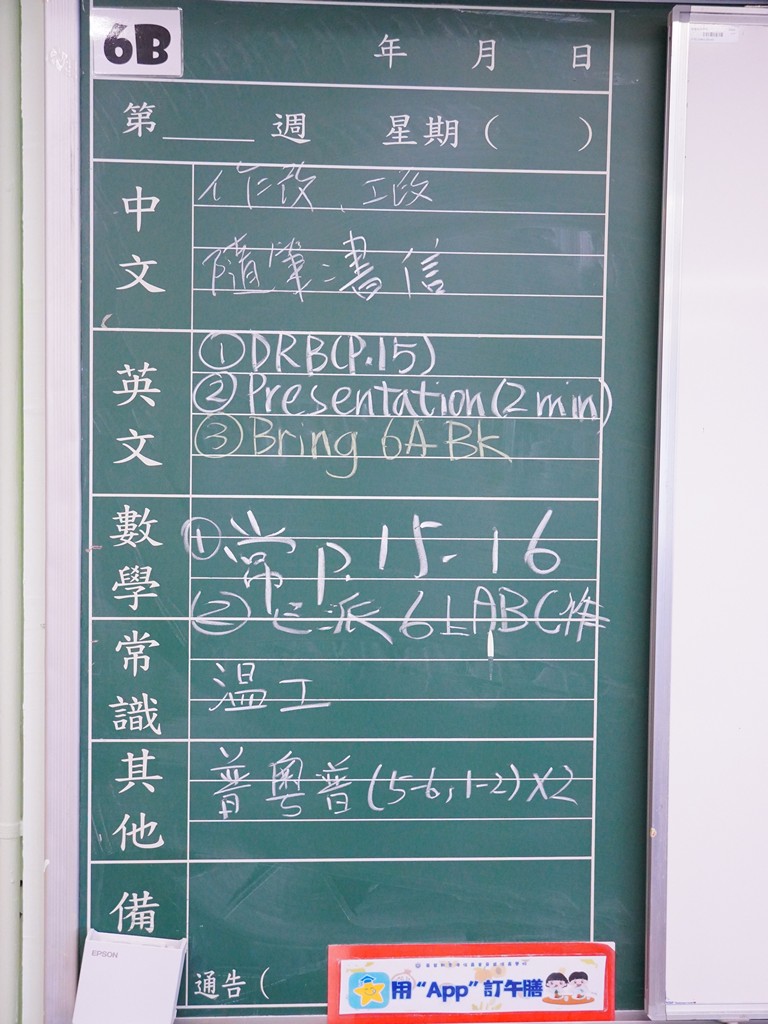 6B
年 月 日
第 週 星期( )
中文
作改、工改
隨筆:書信
英文
①DRB(P.15)
②Presentation(2min)
③Bring 6A BK
數學
①常 P. 15-16
②已派6上ABC作
常識
溫工
其他
普粵普(5-6,1-2)X2
備
通告(
EPSON
用“App”訂午膳